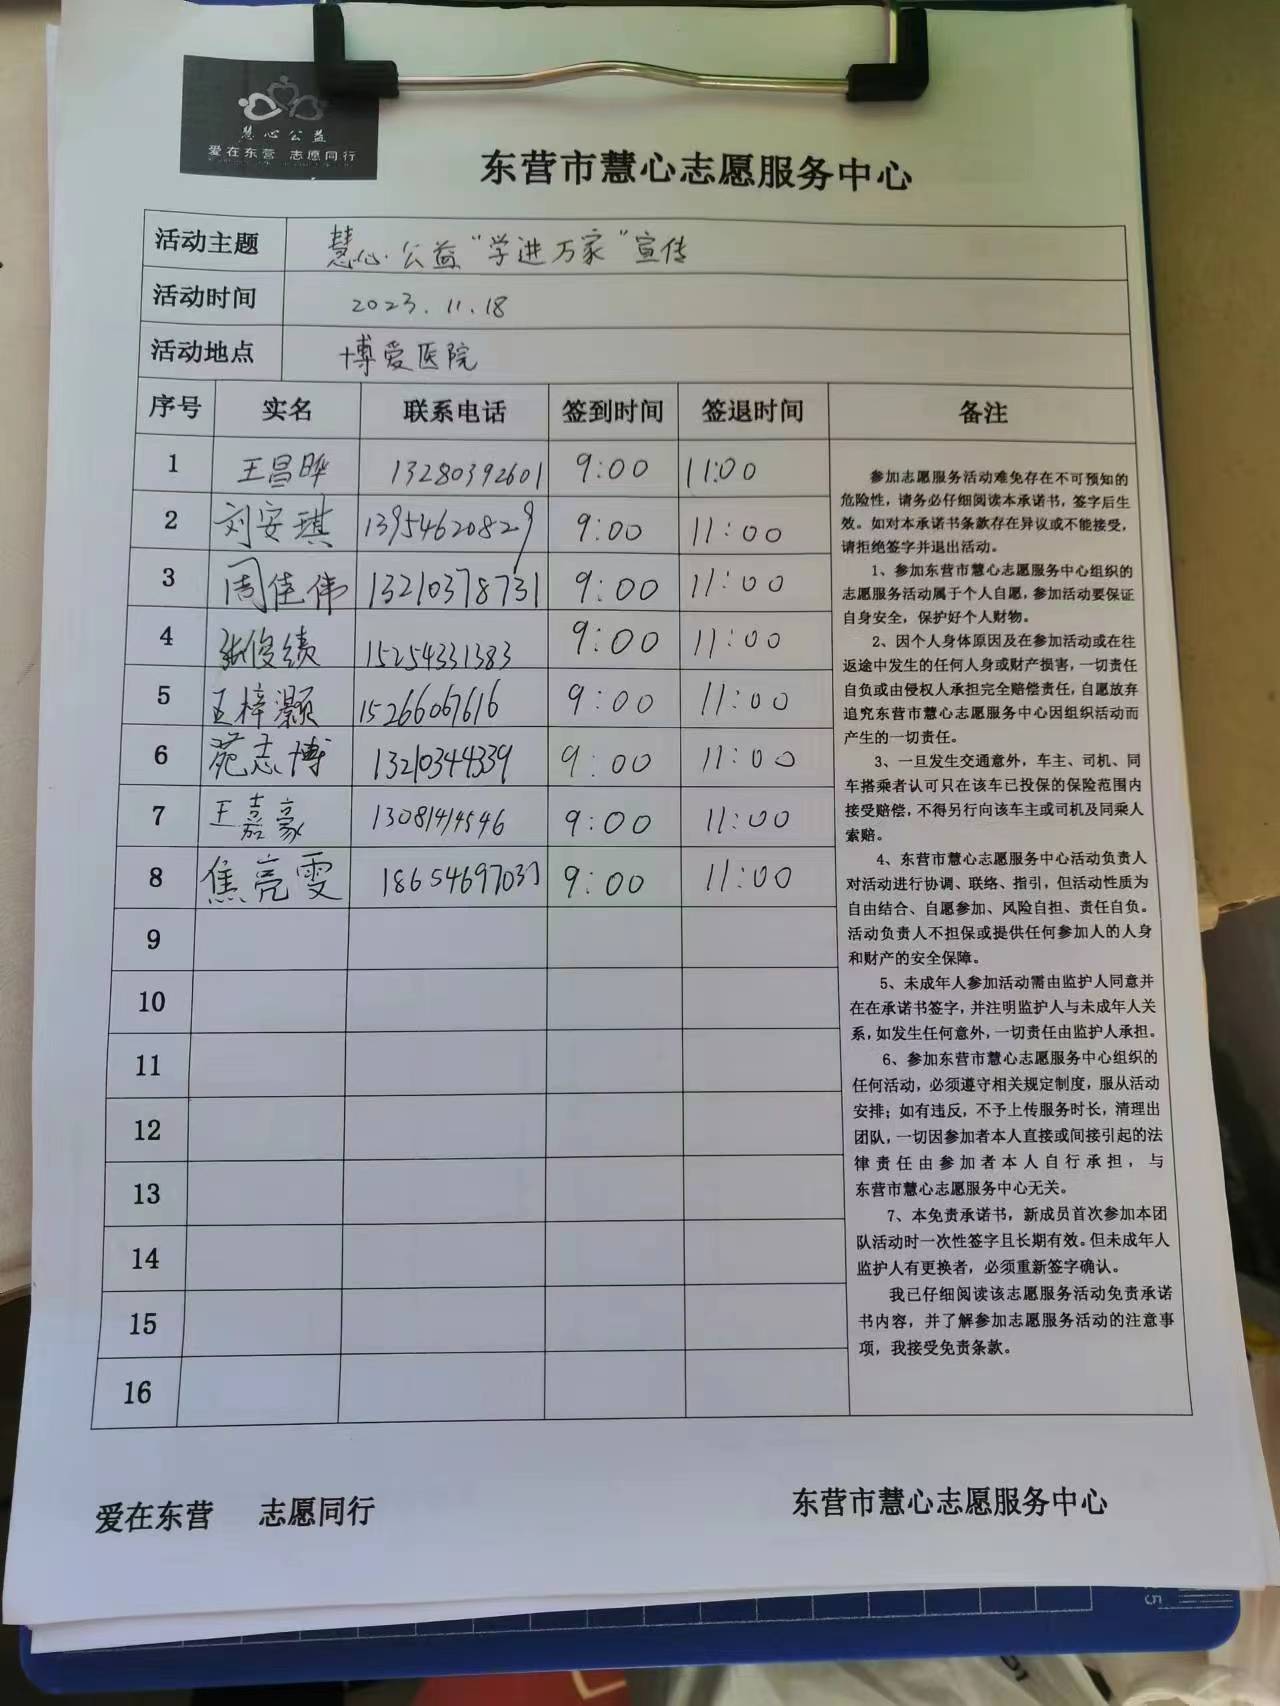 慧心公益
爱在东营 志愿同行
东营市慧心志愿服务中心
活动主题 慧心公益“学进万家”宣传
活动时间 2023.11.18
活动地点 博爱医院
序号 实名 联系电话 签到时间 签退时间 备注
1 王昌晔 13280392601 9:00 11:00
2 刘安琪 13954620829 9:00 11:00
3 周佳伟 13210378731 9:00 11:00
4 张俊绩 15254331383 9:00 11:00
5 王梓灏 15266067616 9:00 11:00
6 苑志博 13210344339 9:00 11:00
7 王嘉豪 13081414546 9:00 11:00
8 焦亮雯 18654697037 9:00 11:00
9
10
11
12
13
14
15
16
参加志愿服务活动难免存在不可预知的
危险性，请务必仔细阅读本承诺书，签字后生
效。如对本承诺书条款存在异议或不能接受，
请拒绝签字并退出活动。
1、参加东营市慧心志愿服务中心组织的
志愿服务活动属于个人自愿，参加活动要保证
自身安全，保护好个人财物。
2、因个人身体原因及在参加活动或在往
返途中发生的任何人身或财产损害，一切责任
自负或由侵权人承担完全赔偿责任，自愿放弃
追究东营市慧心志愿服务中心因组织活动而
产生的一切责任。
3、一旦发生交通意外，车主、司机、同
车搭乘者认可只在该车已投保的保险范围内
接受赔偿，不得另行向该车主或司机及同乘人
索赔。
4、东营市慧心志愿服务中心活动负责人
对活动进行协调、联络、指引，但活动性质为
自由结合、自愿参加、风险自担、责任自负。
活动负责人不担保或提供任何参加人的人身
和财产的安全保障。
5、未成年人参加活动需由监护人同意并
在在承诺书签字，并注明监护人与未成年人关
系，如发生任何意外，一切责任由监护人承担。
6、参加东营市慧心志愿服务中心组织的
任何活动，必须遵守相关规定制度，服从活动
安排；如有违反，不予上传服务时长，清理出
团队，一切因参加者本人直接或间接引起的法
律责任由参加者本人自行承担，与
东营市慧心志愿服务中心无关。
7、本免责承诺书，新成员首次参加本团
队活动时一次性签字且长期有效。但未成年人
监护人有更换者，必须重新签字确认。
我已仔细阅读该志愿服务活动免责承诺
书内容，并了解参加志愿服务活动的注意事
项，我接受免责条款。
爱在东营 志愿同行 东营市慧心志愿服务中心